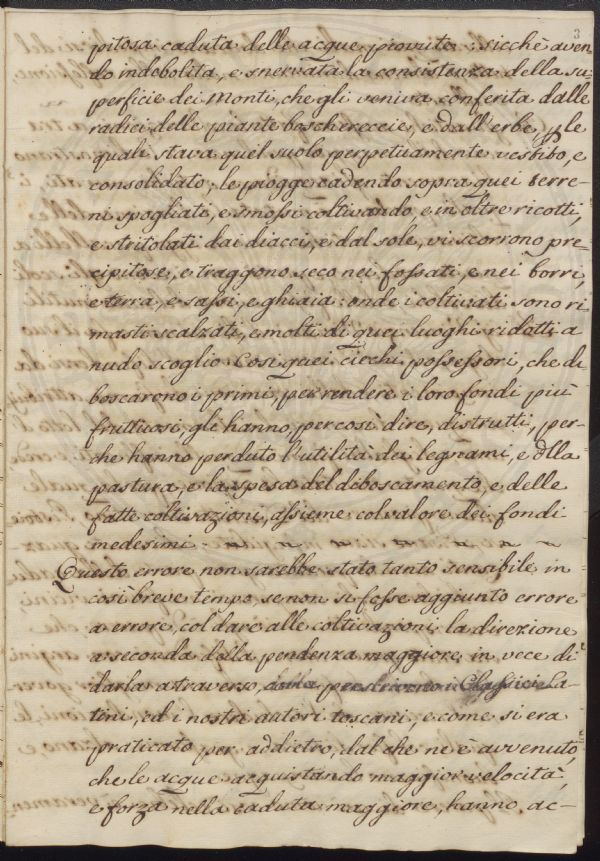 3
pitosa caduta delle acque provvita: sicchè aven
do indebolita, e snervata la consistenza della su-
perficie dei Monti, che gli veniva conferita dalle
radici delle piante boschereccie, e dall'erbe, le
quali stava quel suolo perpetuamente vestito, e
consolidato, le piogge cadendo sopra quei terre-
ni spogliati, e smossi coltivando, e in oltre ricotti,
e stritolati dai diacci, e dal sole, vi scorrono pre
cipitose, e traggono seco nei fossati, e nei borri,
e terra, e sassi, e ghiaia: onde i coltivati sono ri
masti scalzati, e molti di quei luoghi ridotti a
nudo scoglio. Così quei ciechi possessori, che di
boscarono i primi, per rendere i loro fondi più
fruttuosi, gli hanno, per così dire, distrutti, per-
che hanno perduto l'utilità dei legnami, e dlla
pastura, e la spesa del diboscamento, e delle
fatte coltivazioni, assieme col valore dei fondi
medesimi
Questo errore non sarebbe stato tanto sensibile in
così breve tempo, se non si fosse aggiunto errore
a errore, col dare alle coltivazioni la direzione
a seconda della pendenza maggiore, in vece di
darla a traverso, prescrivono i Classici La-
tini, ed i nostri autori toscani, e come si era
praticato per addietro, dal che ne è avvenuto,
che le acque acquistando maggior velocità,
e forza nella caduta maggiore, hanno, ac-